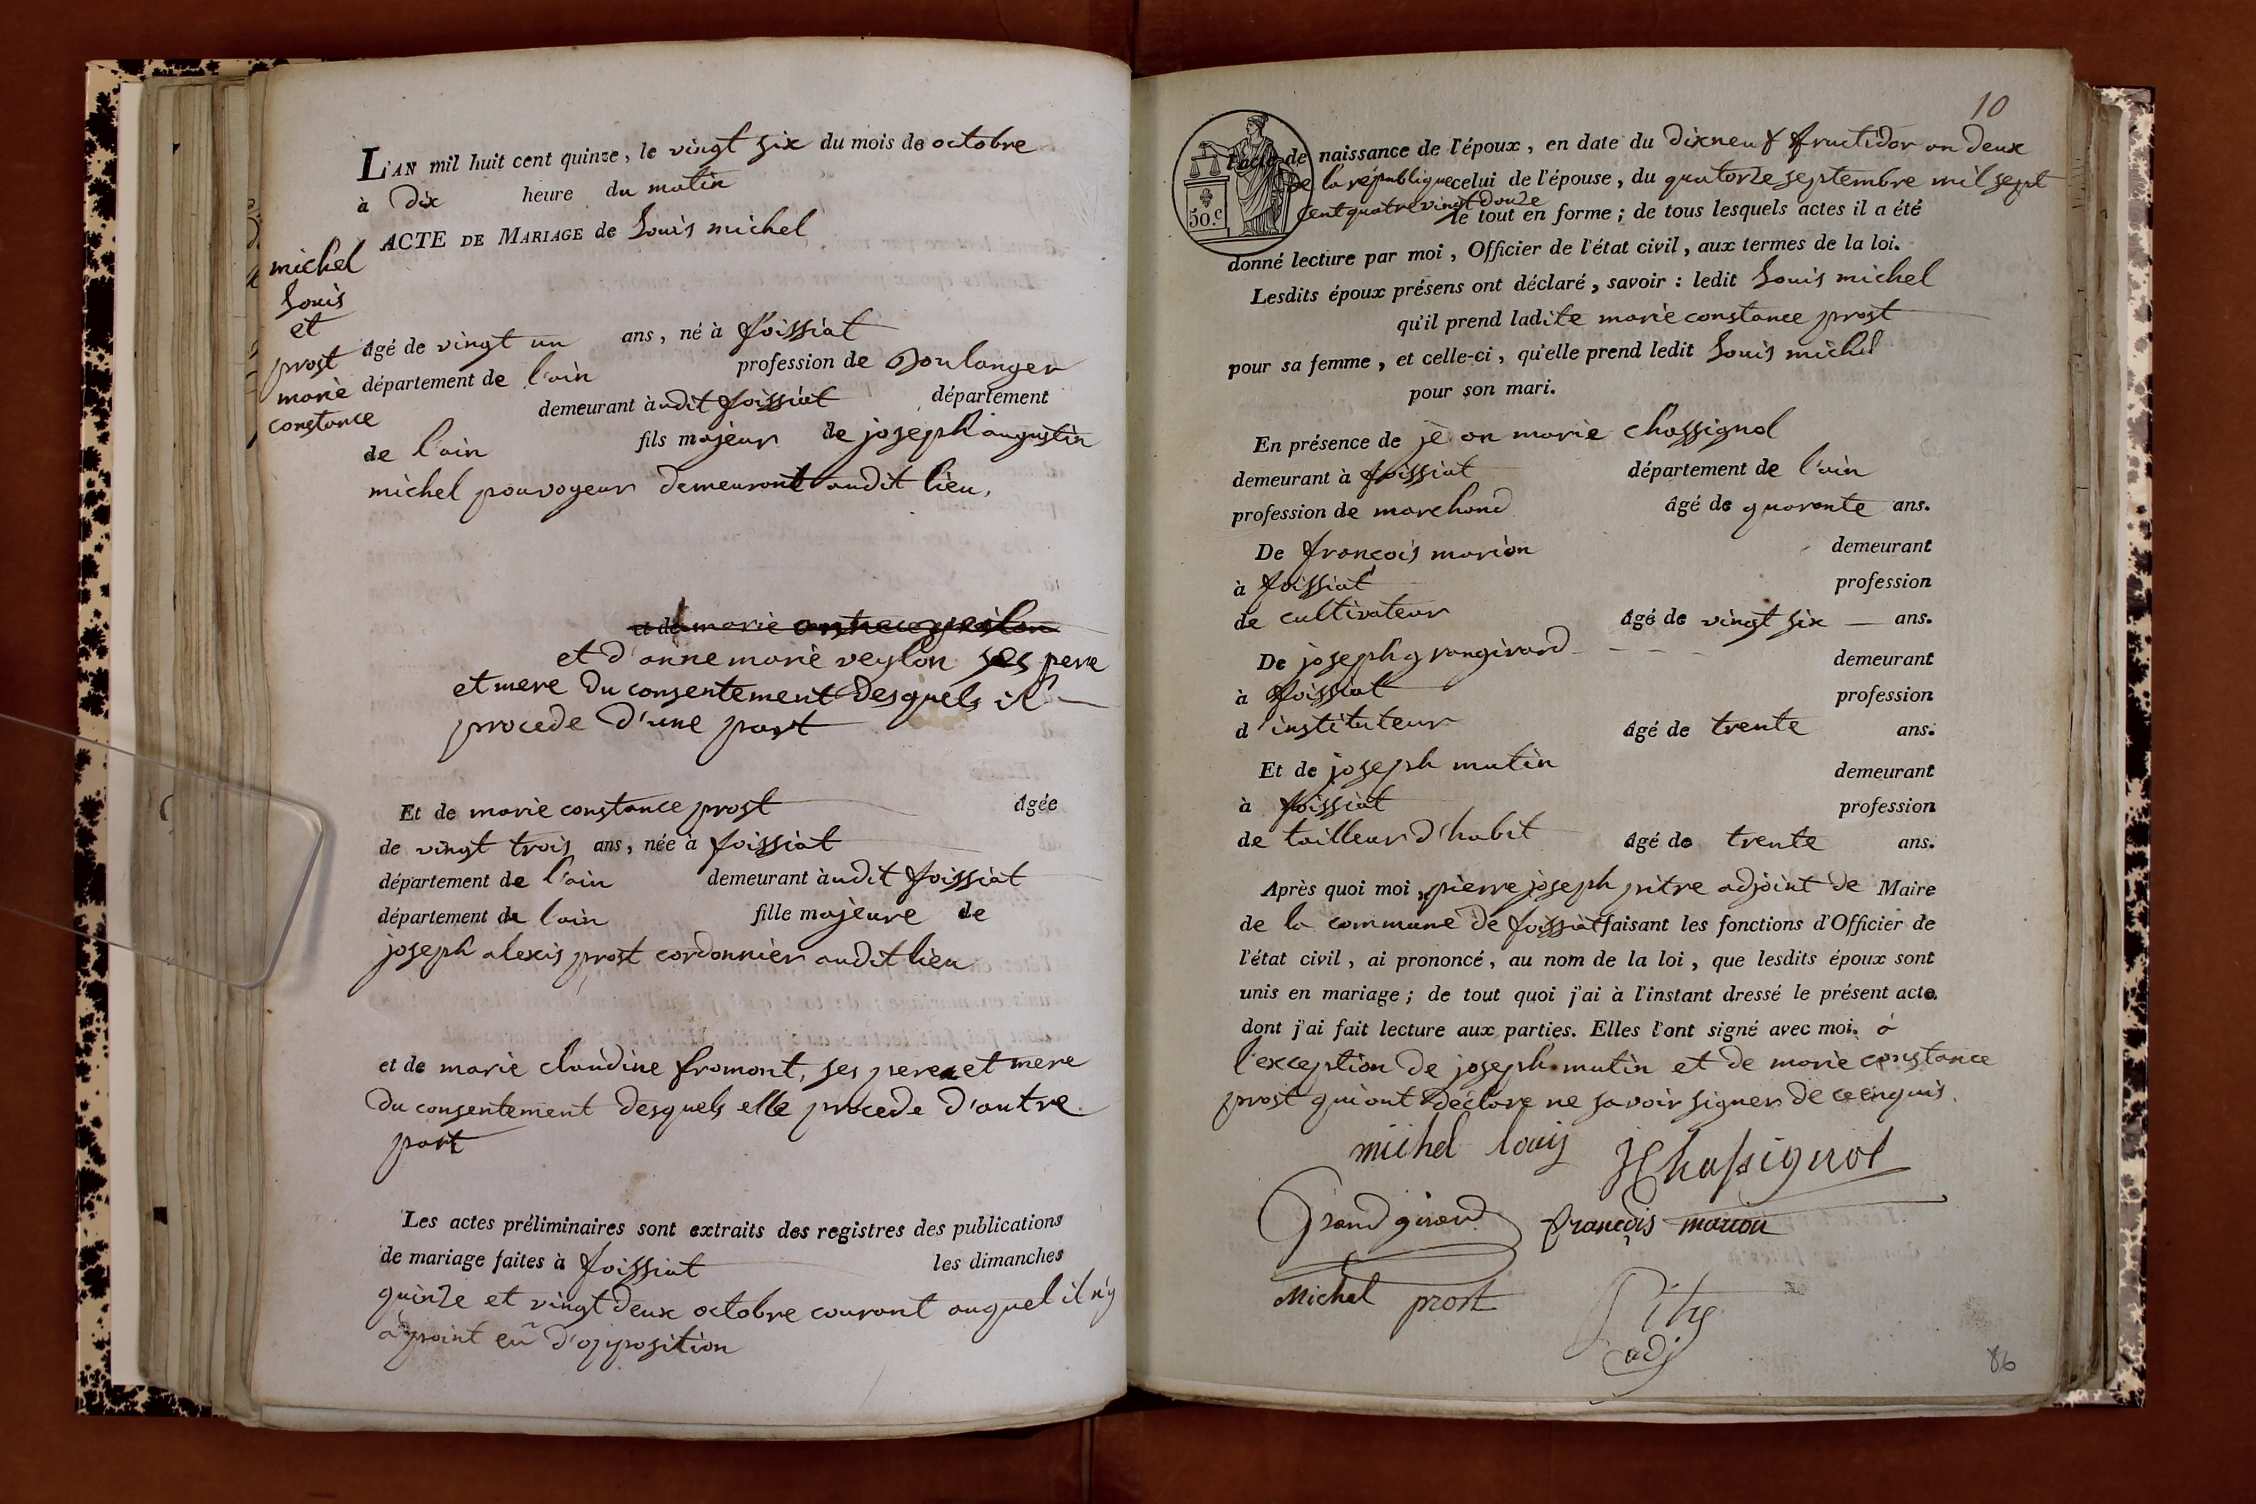 L'AN mil huit cent quinze, le vingt six du mois de octobre
à Dix heure du matin
ACTE DE MARIAGE de Louis michel
michel
Louis
et
prost
marie
constance
âgé de vingt un ans, né à foissiat
département de l'ain profession de Boulanger
demeurant àudit foissiat département
de l'ain fils majeur de joseph augustin
michel pourvoyeur demeurant audit lieu,
et de marie
et d'anne marie veylon ses pere
et mere du consentement desquels il
procede d'une part
Et de marie constance prost âgée
de vingt trois ans, née à foissiat
département de l'ain demeurant àudit foissiat
département de lain fille majeure de
joseph alexis prost cordonnier audit lieu
et de marie claudine fromont, ses pere et mere
du consentement desquels elle procede d'autre
part
Les actes préliminaires sont extraits des registres des publications
de mariage faites à foissiat les dimanches
quinze et vingt deux octobre courant auquel il n'y
a point eu d'opposition
10
50.c
l'acte de naissance de l'époux, en date du dixneuf fructidor an deux
de la republique celui de l'épouse, du quatorze septembre mil sept
cent quatre vingt douze
le tout en forme; de tous lesquels actes il a été
donné lecture par moi, Officier de l'état civil, aux termes de la loi.
Lesdits époux présens ont déclaré, savoir : ledit Louis michel
qu'il prend ladite marie constance prost
pour sa femme, et celle-ci, qu'elle prend ledit Louis michel
pour son mari.
En présence de je an marie chassignol
demeurant à foissiat département de l'ain
profession de marchand âgé de quarante ans.
De françois marion demeurant
à foissiat profession
de cultivateur âgé de vingt six ans.
De joseph grangirard demeurant
à foissiat profession
d'instituteur âgé de trente ans.
Et de joseph mutin demeurant
à foissiat profession
de tailleur d'habit âgé de trente ans.
Après quoi moi, pierre joseph pitre adjoint de Maire
de la commune de foissiat faisant les fonctions d'Officier de
l'état civil, ai prononcé, au nom de la loi, que lesdits époux sont
unis en mariage; de tout quoi j'ai à l'instant dressé le présent acte.
dont j'ai fait lecture aux parties. Elles l'ont signé avec moi. à
l'exception de joseph mutin et de marie constance
prost qui ont déclare ne savoir signer de ce enquis.
michel louis JChassignol
Grandgirard françois marion
Michel prost Pitre
adj
86